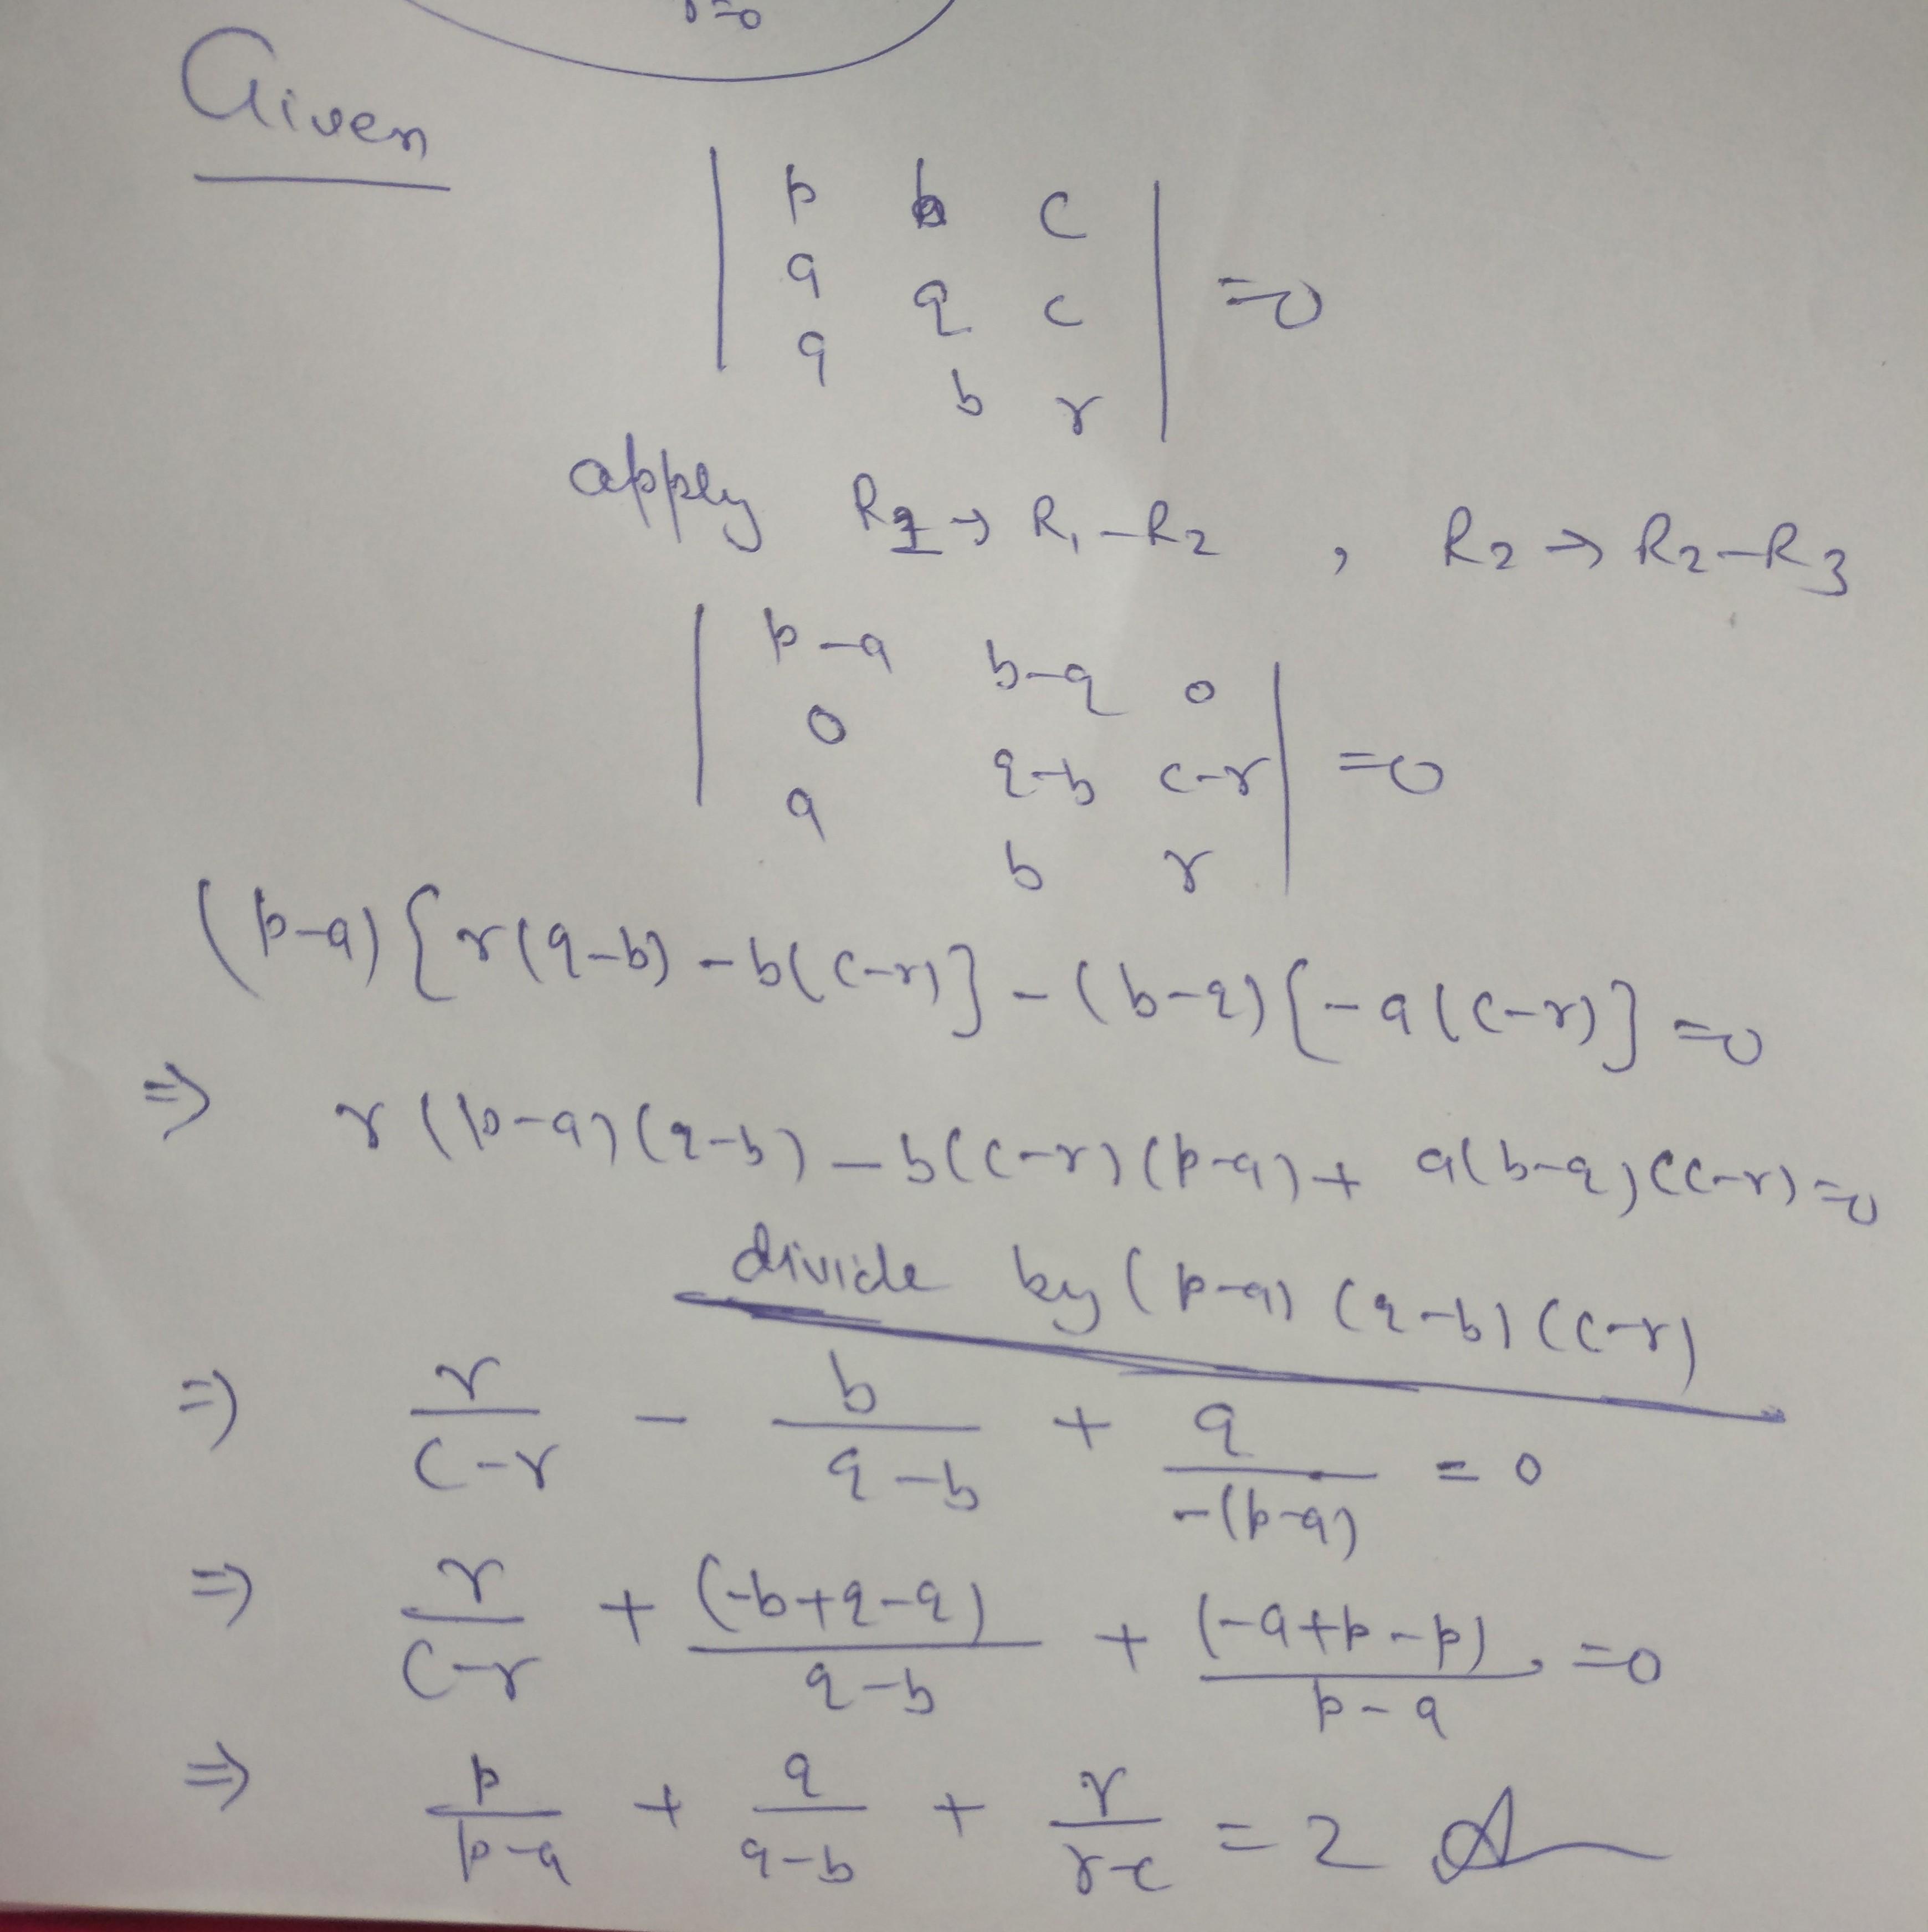 =0
Given
| p b c |
| a q c | =0
| a b r |
apply R1 → R1-R2 , R2 → R2-R3
| p-a b-q 0 |
| 0 q-b c-r | =0
| a b r |
(p-a){r(q-b)-b(c-r)}-(b-q){-a(c-r)}=0
⇒ r(p-a)(q-b)-b(c-r)(p-a)+a(b-q)(c-r)=0
divide by (p-a)(q-b)(c-r)
⇒ r/(c-r) - b/(q-b) + a/-(p-a) = 0
⇒ r/(c-r) + (-b+q-q)/(q-b) + (-a+p-p)/(p-a) =0
⇒ p/(p-a) + q/(q-b) + r/(r-c) = 2